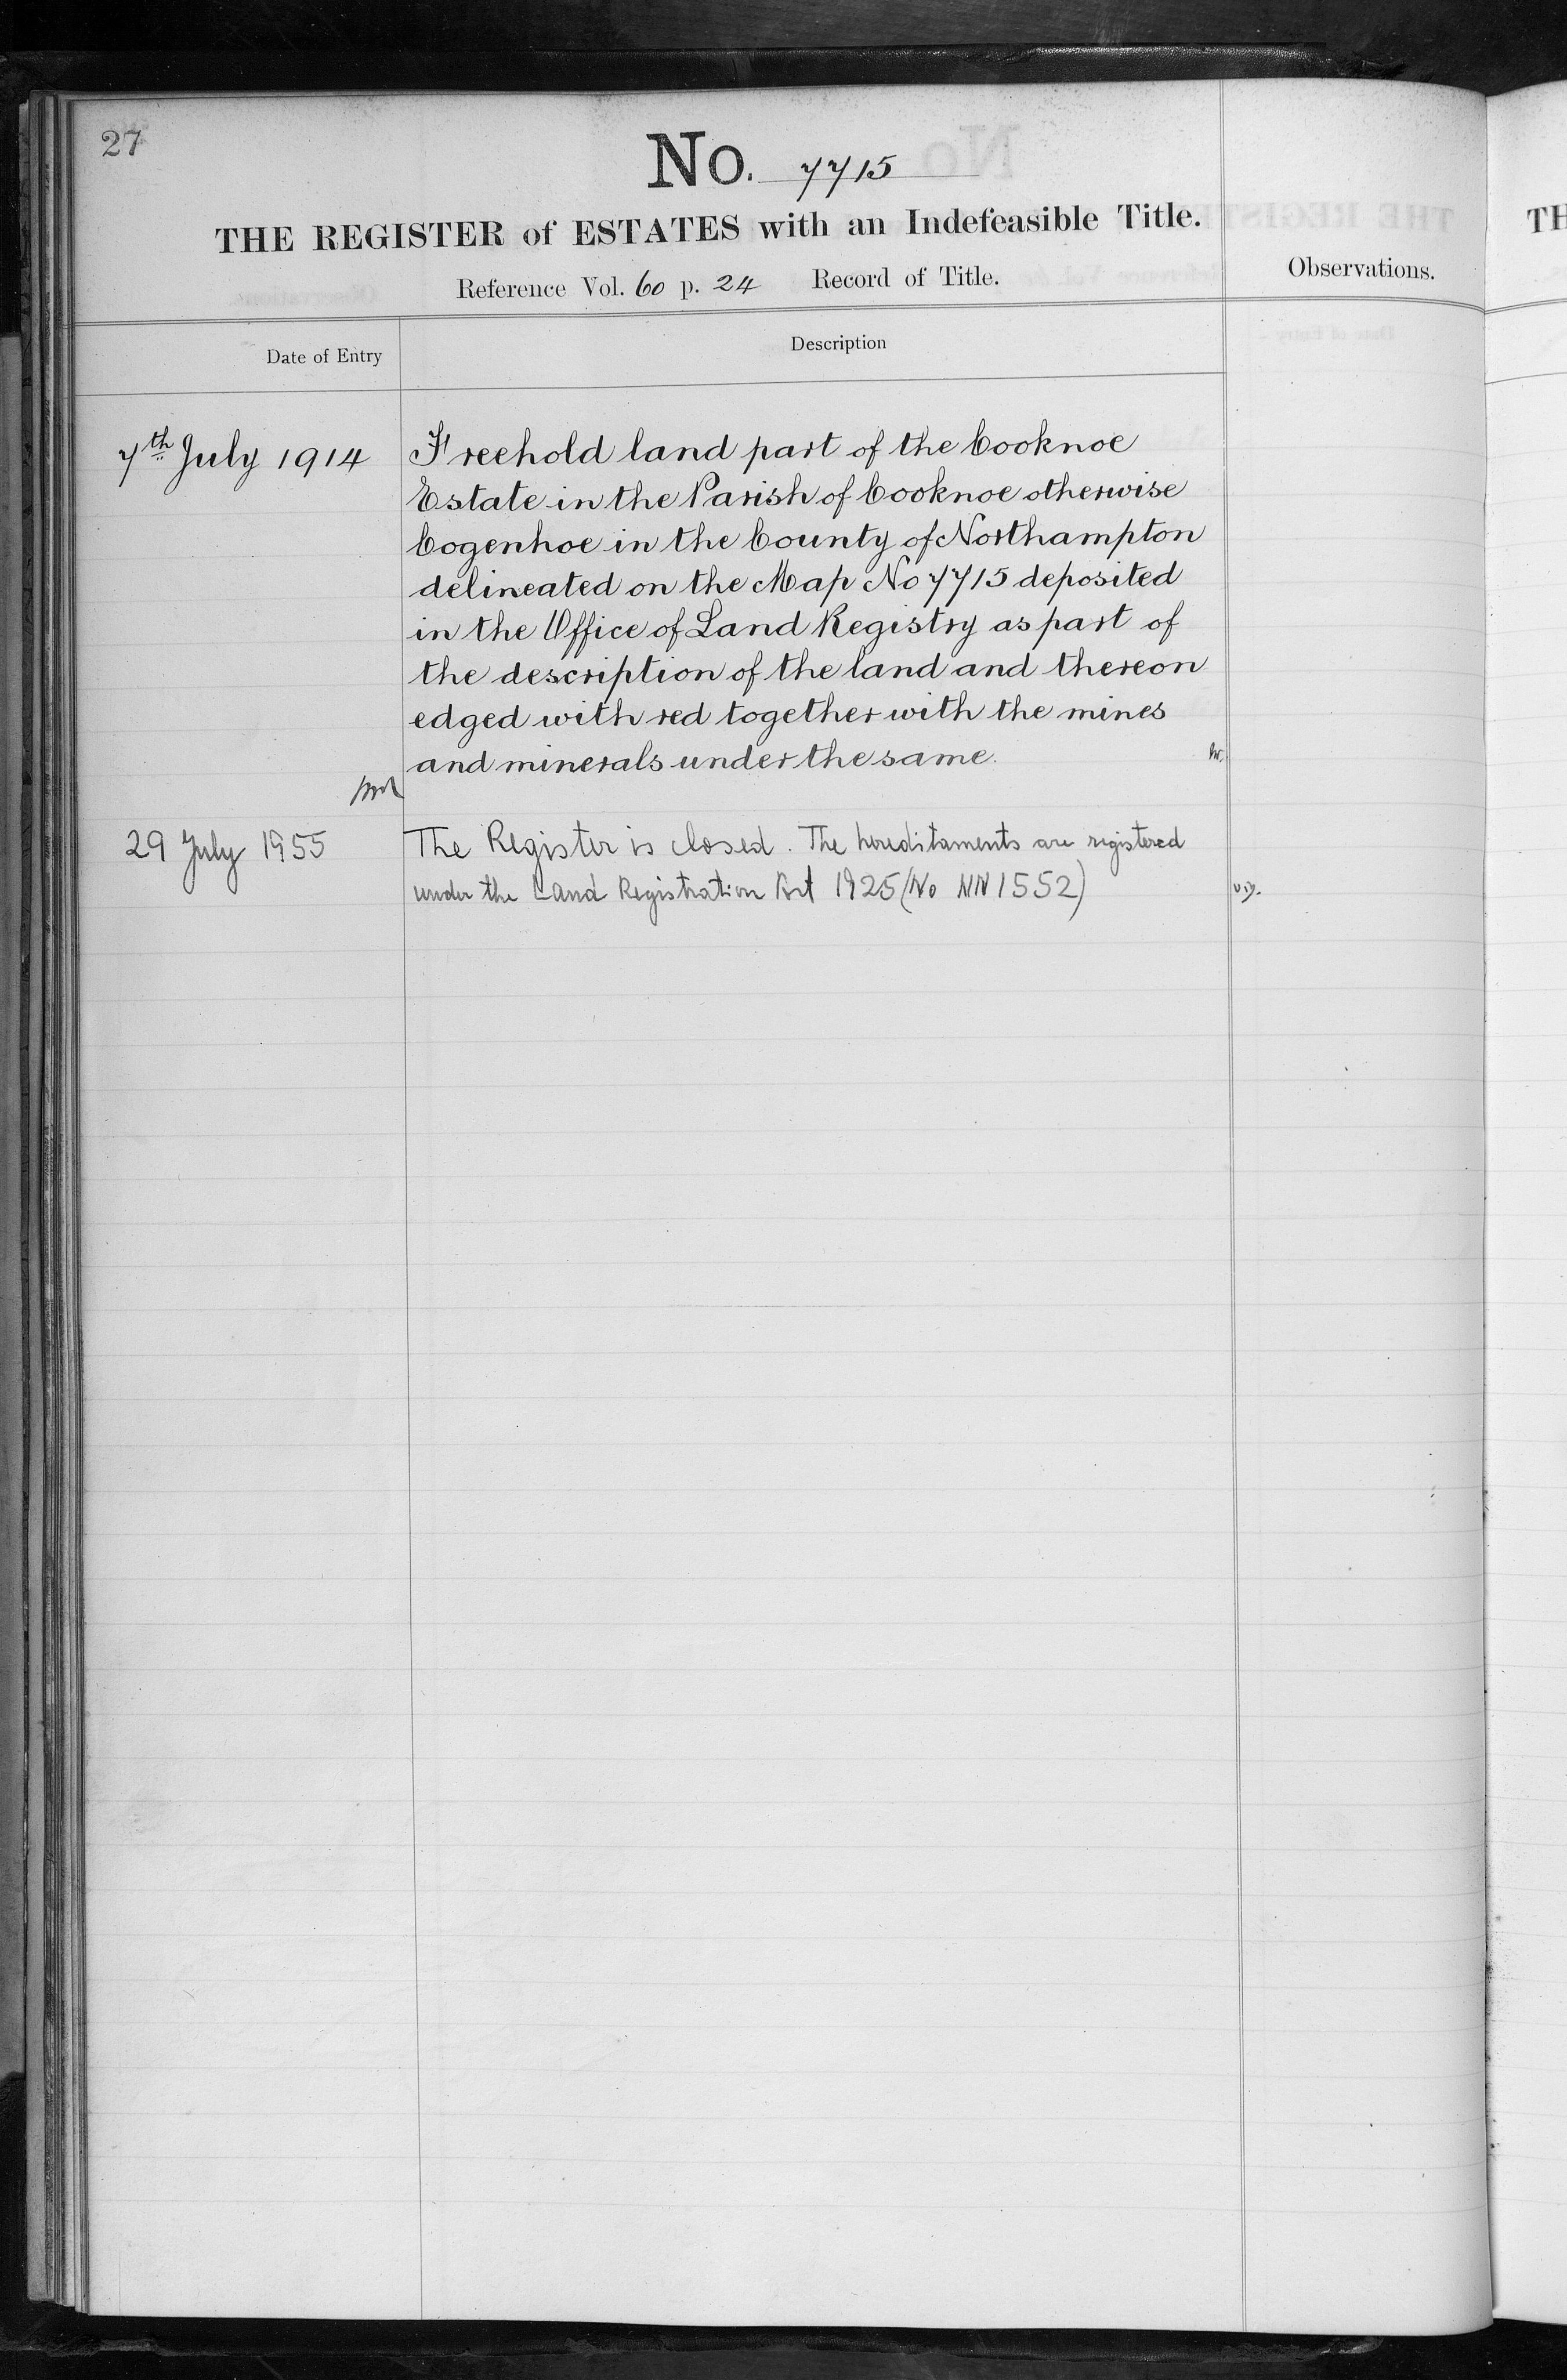 27
No. 7715
THE REGISTER of ESTATES with an Indefeasible Title.
Reference Vol. 60 p. 24 Record of Title.
Observations.
Date of Entry
Description
7th July 1914
Freehold land part of the Cooknoe
Estate in the Parish of Cooknoe otherwise
Cogenhoe in the County of Northampton
delineated on the Map No 7715 deposited
in the Office of Land Registry as part of
the description of the land and thereon
edged with red together with the mines
and minerals under the same.
29 July 1955
The Register is closed. The hereditaments are registered
under the Land Registration Act 1925 (No NN1552)
TH